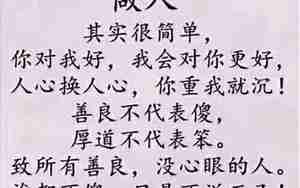 做人
其实很简单，
你对我好，我会对你更好，
人心换人心，你重我就沉！
善良不代表傻，
厚道不代表笨。
致所有善良，没心眼的人。